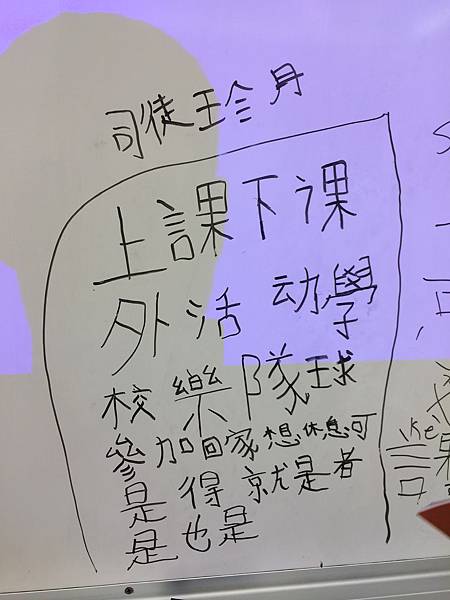 司徒珍
上課下课
外活动學
校樂隊球
參加回家想休息可
是得就是者
是也是
ke